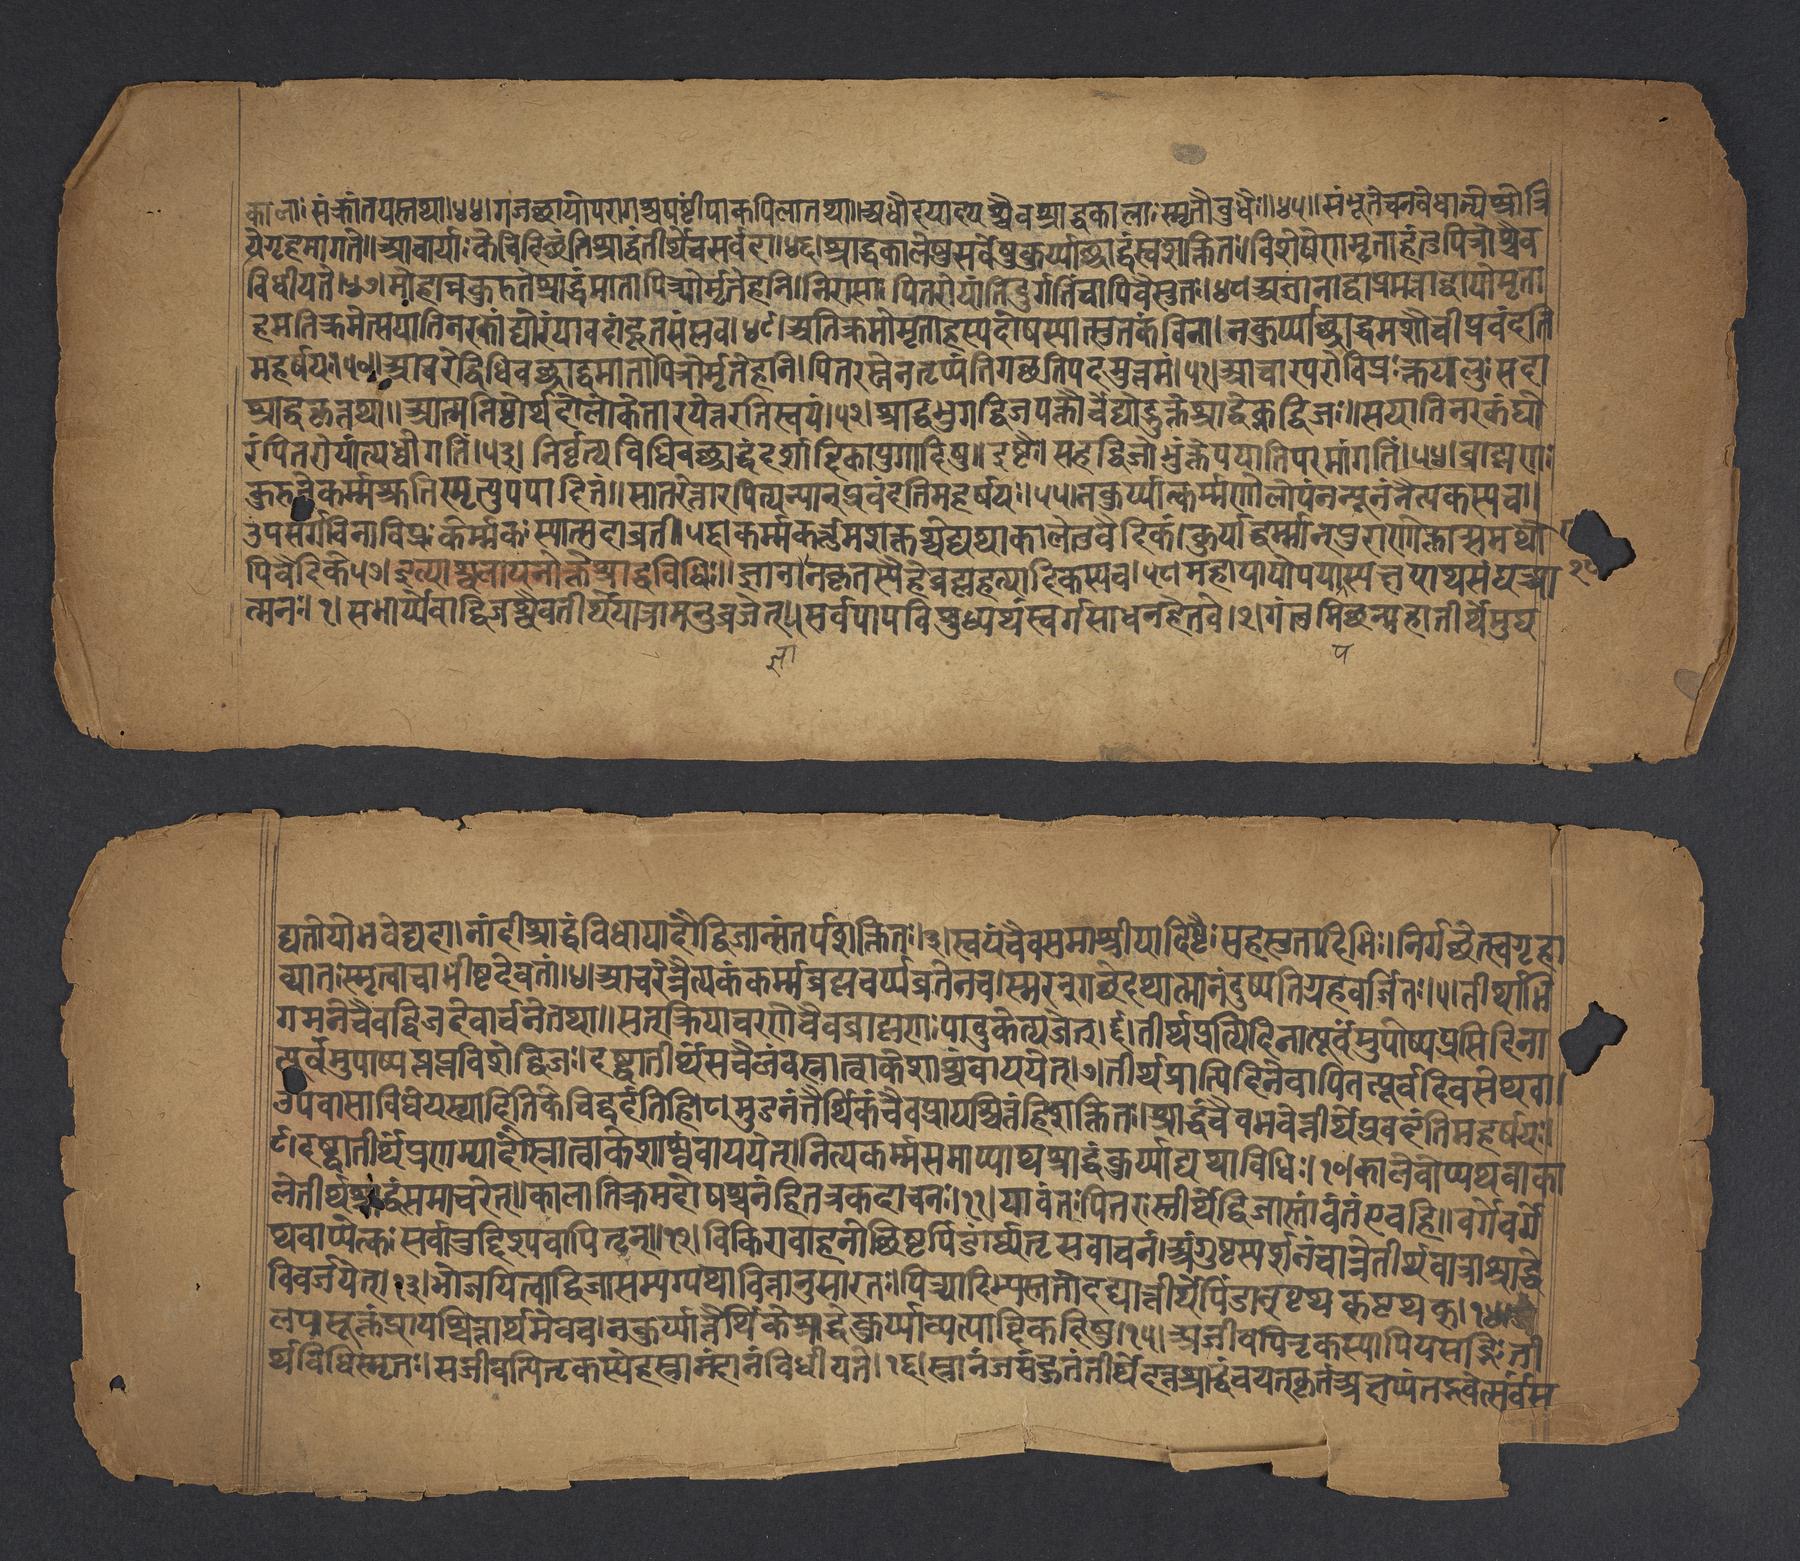 कालाः संक्रांतयस्तथा।।४४। गजच्छायोपरागश्चषष्टीपाककपिलातथा।।अर्धोदयादयश्चैवश्राद्धकालाः स्मृतौबुधैः।।४५।।संभूतेचनवेधान्येश्रोत्रि
येगृहमागते।।आचार्याः केचिदिच्छंतिश्राद्धंतीर्थेचसर्वदा।४६।श्राद्धकालेषुसर्वेषुकुर्य्याच्छ्राद्धंस्वशक्तितः।विशेषेणमृताहेतुपित्रोश्चैव
विधीयते।।४७।मोहान्नकुरुतेश्राद्धंमातापित्र्योर्मृतेहनि।निरासाः पितरोयांतिदुर्गतिंचापिवैसुतः।४८अज्ञानाद्वाप्रमत्ताद्वायोमृता
हमतिक्रमेत्सयातिनरकंघोरंयावदाहूतसंप्लव।४९।अतिक्रमोमृताहस्यदोषस्यात्सूतकंविना।नकुर्य्याच्छ्राद्धमशौचीप्रवदंति
महर्षयः।५०।आचरेद्विधिवच्छ्राद्धमातापित्रोर्मृतेहनि।पितरस्तेनतृप्यंतिगच्छतिपदमुत्तमं।५१।आचारपरोविप्रः कृपालुः सदा
श्राद्धकृत्तथा।।आत्मनिष्ठोर्थदोलोकेतारयेत्तरतिस्वयं।५२।श्राद्धभुगद्विजपंक्तौचेद्योद्भुक्तेश्राद्धेकद्विजः।।सयातिनरकंघो
रंपितरोयांत्यधोगतिं।५३। निर्वृत्यविधिवच्छ्राद्धंदर्शाष्टिकायुगादिषु।।इष्टैः सहद्विजोभुंक्तेपयातिपरमांगतिं।५४।ब्राह्मणः
कुरुतेकर्म्मश्रुतिस्मृत्युपपादितं।।सातरंत्तारपित्यन्यान्प्रवदंतिमहर्षयः।।५५।नकुर्य्यात्कर्म्मणोलोपंनन्यूनंनैत्यकस्यच।।
उपसर्गविनाविप्रः कर्म्मकः स्यात्सदाव्रती।।५६।कर्म्मकर्तुमशक्तश्चेद्यथाकालेतुवैदिकं।कुर्याद्धर्म्मान्पुराणोक्तान्समर्थो
पिवैदिके५७।इत्याश्वलायनोक्तेश्राद्धविधिः।।ज्ञानानकृतस्यैहेब्रह्महत्यादिकस्यच।५८महापापोपपास्यत्तपाथसंघआ
त्मनः।१।सभार्य्योवाद्विजश्चैवतीर्थयात्रामनुव्रजेत्।।सर्वपापविशुध्यर्थंस्वर्गसाधनहेतवे।२।गंतुमिच्छन्महातीर्थमुप
ज्ञा प
द्यतोयोभवेद्यदा।नांदीश्राद्धंविधायादौद्विजान्संतर्पशक्तितः।३।स्वयंचैवसमाश्रीयादिष्टैः सहसुतादिभिः।निर्गच्छेत्स्वगृहा
व्यातः स्मृत्वाचाभीष्टदेवतां।४।आचरंनैत्यकंकर्म्मब्रह्मचर्य्यव्रतेनच।स्मरन्गच्छेदथात्मानंदुष्प्रतिग्रहवर्जितः।५।तीर्थाभि
गमनेचैवद्विजदेवार्चनेतथा।।सत्क्रियाचरणेचैवब्राह्मणः पादुकेत्यजेत्।६।तीर्थप्राप्तिदिनात्पूर्वमुपोष्यप्राप्तिदिना
त्पूर्वमुपाष्यप्लप्लविशेद्विजः।दृष्ट्वातीर्थंसचैलंवस्नात्वाकेशांश्चवापयेत्।७।तीर्थप्राप्तिदिनेवापितत्पूर्वदिवसेथवा।
उपवासोविधेयस्यादितिकेचिद्वदंतिहि।८।मुंडनंतैर्थिकंचैवप्रायश्चित्तंहिशक्तितः।श्राद्धंचैवभवेत्तीर्थेप्रवदंतिमहर्षयः।
९।दृष्ट्वातीर्थंप्रणम्यादौस्नात्वाकेशांश्चवापयेत्।नित्यकर्म्मसमाप्याथश्राद्धंकुर्य्याद्यथाविधिः।१०।कालेवोप्यथवाका
लेतीर्थश्राद्धंसमाचरेत्।।कालातिक्रमदोषश्चनंहितत्रकदाचन।११।यावंतः पितरस्तीर्थेद्विजास्तावंतंएवहि।।वर्गेवर्गे
थवाप्येकः सर्वानुद्दिश्यवापितॄन्।।१२।विकिरावाहनोच्छिष्टपिंडार्ध्यतृसवाचनं।अंगुष्टस्पर्शनंचान्नेतीर्थयात्राश्राद्धे
विवर्जयेत्।१३।भोजयित्वाद्विजासम्यग्यथावित्तानुसारतः।पित्र्यादिभ्यस्ततोदद्यात्तीर्थेपिंडान्पृथक्पृथक्।१४।
लपासूक्तंप्रायश्चित्तार्थमेवच।नकुर्य्यात्तैर्थिकेश्राद्धेकुर्य्याद्यत्पाष्टिकदिषु।१५।अजीवपितृकस्यापियसद्भिः ती
र्थविधिस्मृतः।सजीवत्पितृकस्येहस्नानंदानंविधीयते।१६।स्नानंजसंद्रुतंतीर्थेदत्तश्राद्धंचयत्कृतंअत्तप्यंतद्भवेत्सर्वस